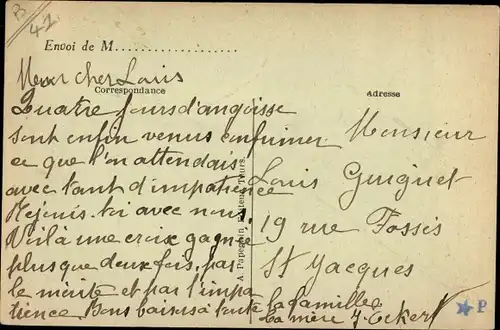 B
42
Envoi de M....................
Mon cher Louis
Correspondance
Quatre jours d'angoisse
sont enfin venus confirmer
ce que l'on attendais
avec tant d'impatience
Rejouis-toi avec nous.
Voilà une croix gagnée
plus que deux fois, par
le mérite et par l'impa
tience. Bons baisers à toute la famille
Ta mère J. Eckert
A. Papeghin Editeur Tours.
Adresse
Monsieur
Louis Guiguet
19 rue Fossés
St Jacques
P